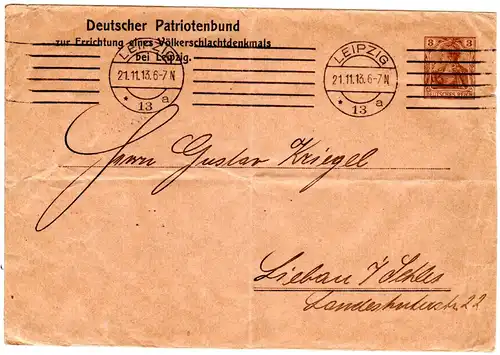 Deutscher Patriotenbund
zur Errichtung eines Völkerschlachtdenkmals
bei Leipzig.
LEIPZIG
21.11.13.6-7N
* 13 a
LEIPZIG
21.11.13.6-7N
* 13 a
3 3
DEUTSCHES REICH
Herrn Gustav Kriegel
Liebau i/Schles
Landeshuterstr. 22